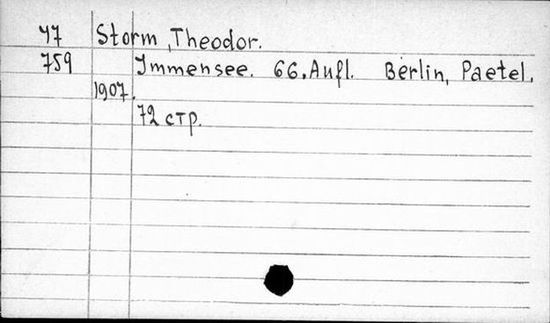 47 Storm, Theodor.
759 Immensee. 66. Aufl. Berlin, Paetel,
1907.
72 стр.